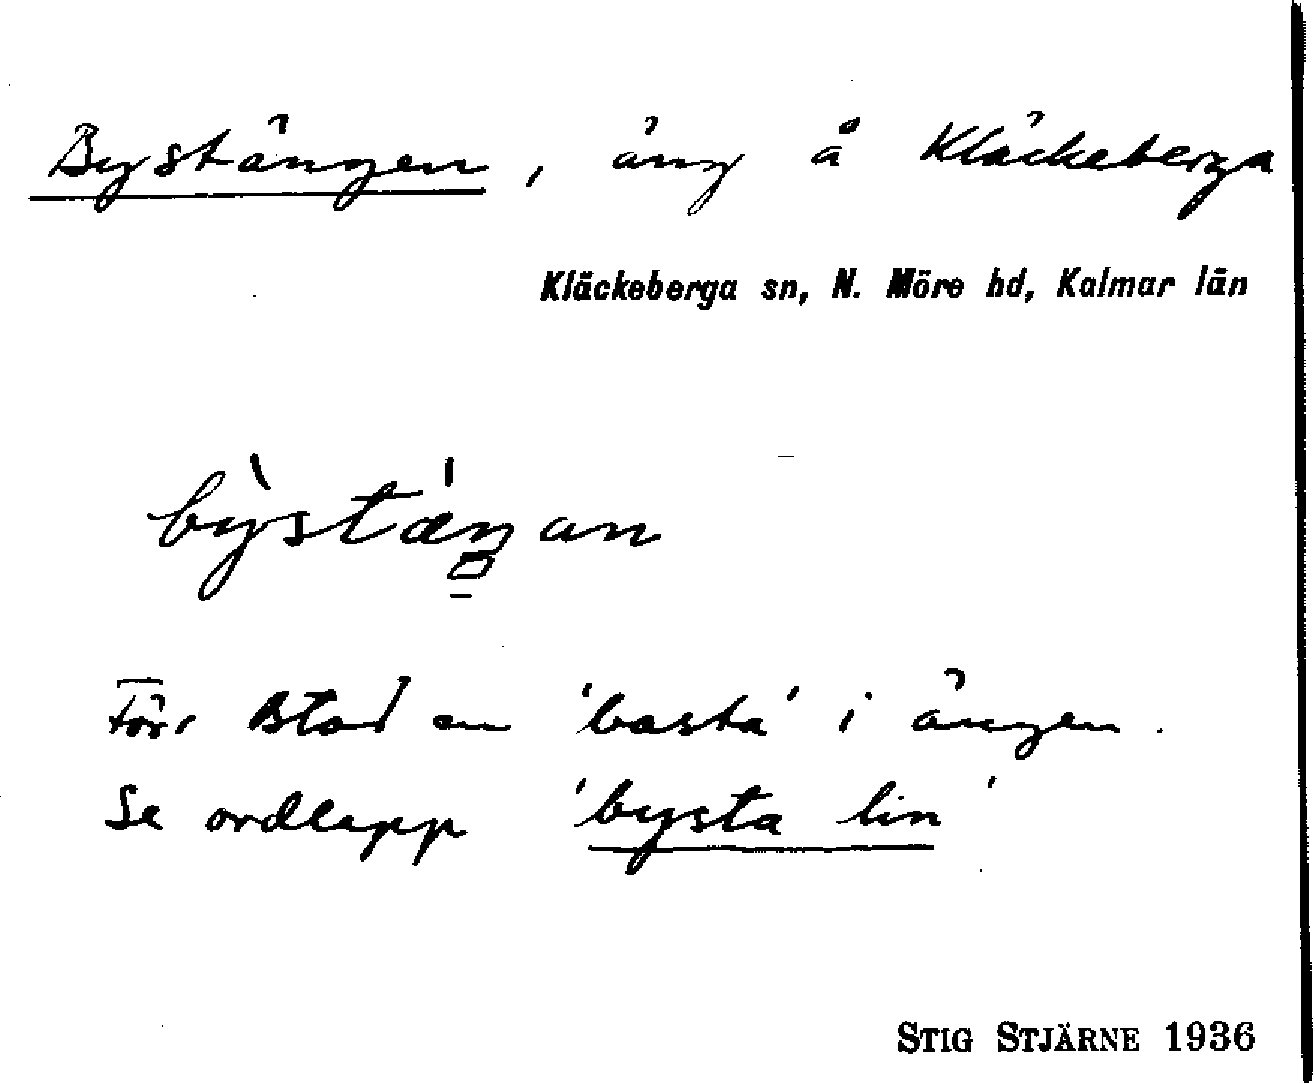 Bystängen, äng å Kläckeberga
Kläckeberga sn, N. Möre hd, Kalmar län
bỳstǽŋan
Förr stod en 'basta' i ängen.
Se ordlapp 'bysta lin'
STIG STJÄRNE 1936